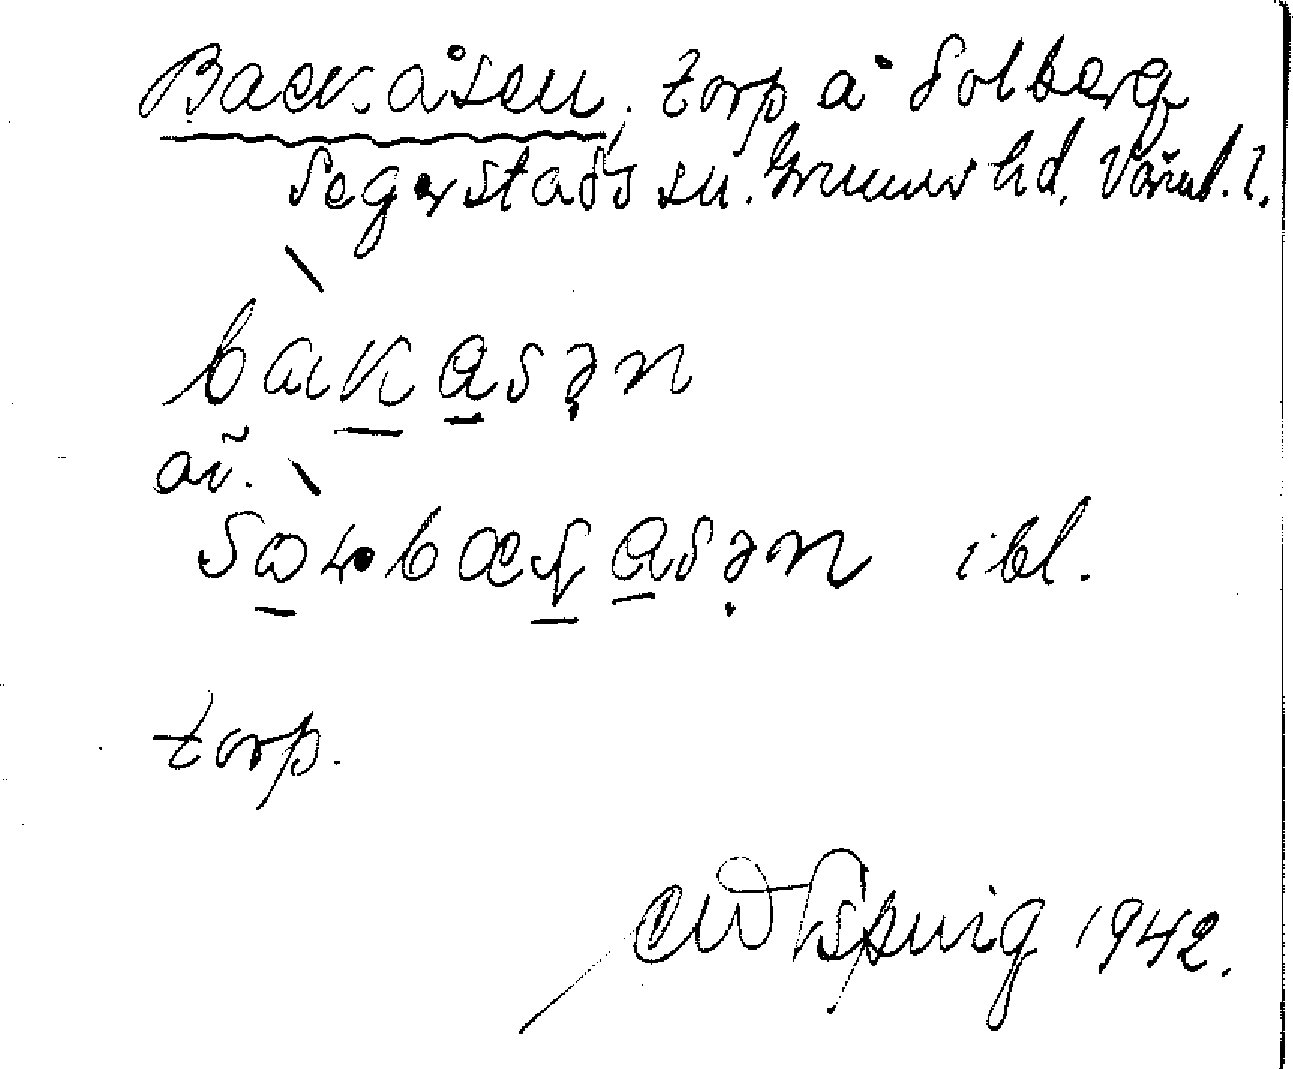 Backåsen, torp å Solberg
Segerstads sn. Grums hd. Värml. l.
bakasən
av.
ibl.
torp.
1942.